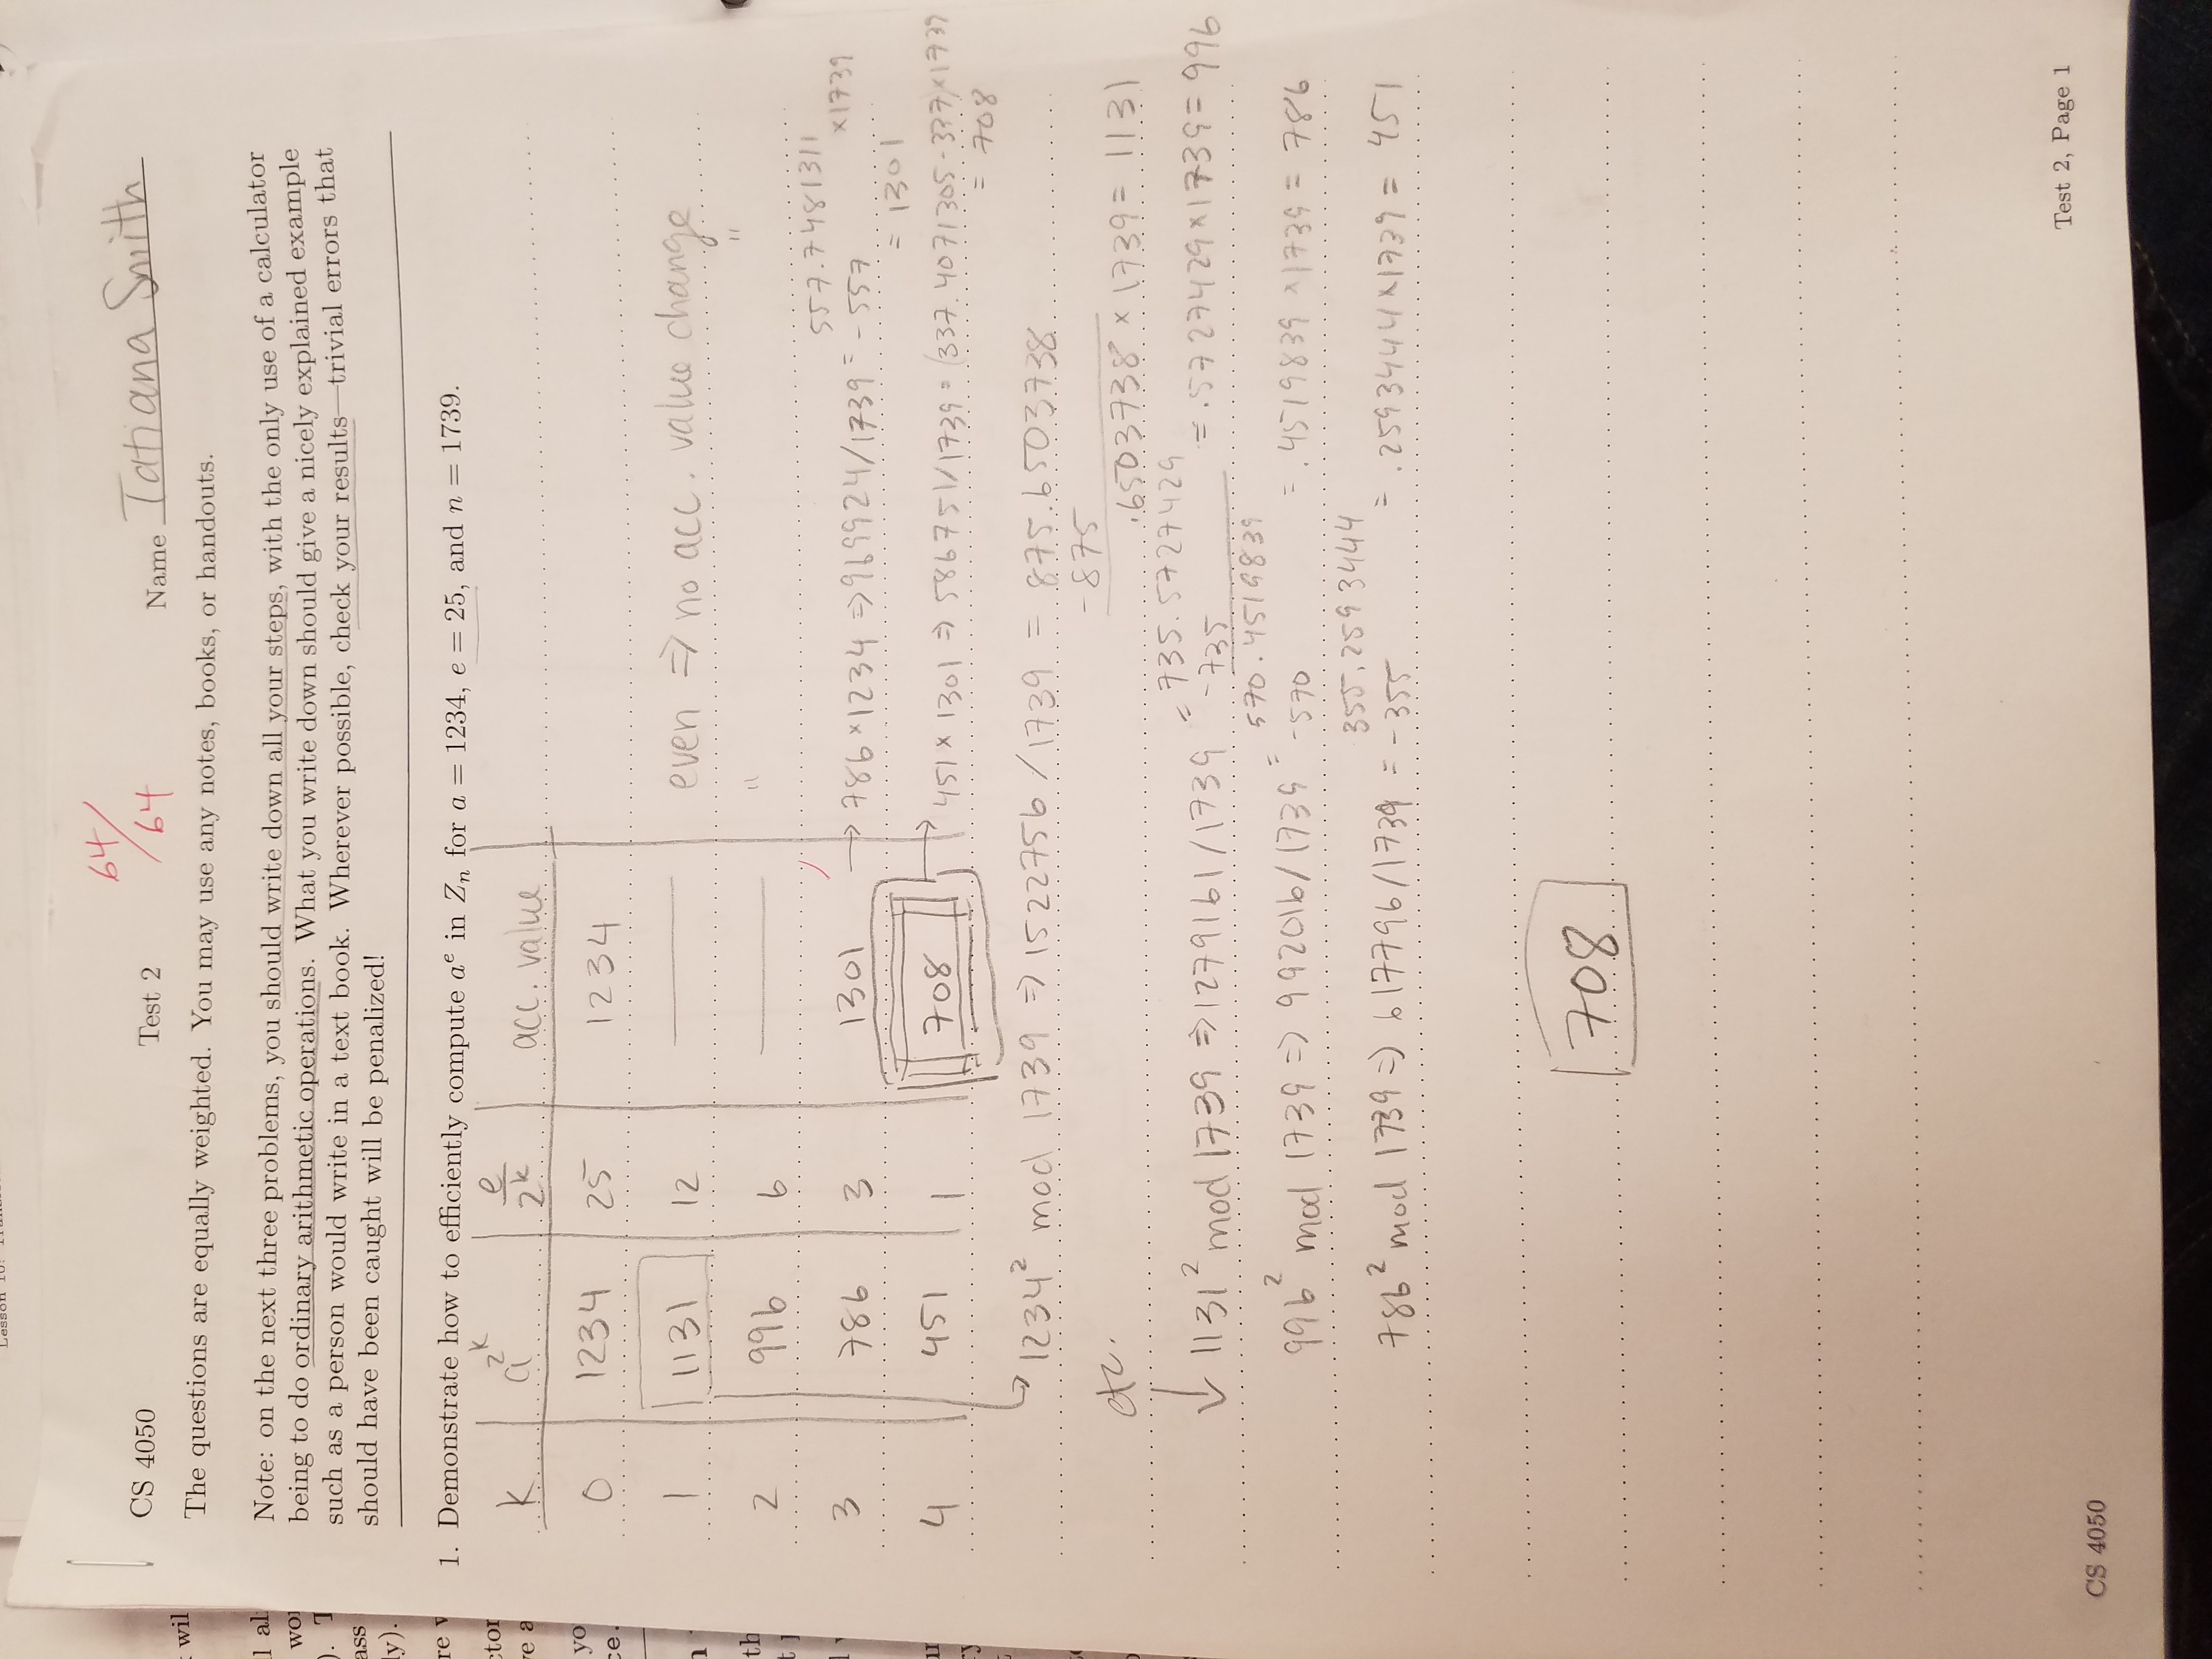 CS 4050 Test 2 64/64 Name Tatiana Smith
The questions are equally weighted. You may use any notes, books, or handouts.
Note: on the next three problems, you should write down all your steps, with the only use of a calculator
being to do ordinary arithmetic operations. What you write down should give a nicely explained example
such as a person would write in a text book. Wherever possible, check your results—trivial errors that
should have been caught will be penalized!
1. Demonstrate how to efficiently compute aᵉ in Zₙ for a = 1234, e = 25, and n = 1739.
K a^2^k e/2^k acc. value
0 1234 25 1234
1 1131 12 — even ⇒ no acc. value change
2 996 6 — " "
557.7481311
3 786 3 1301 → 786 × 1234 ⇒ 969924/1739 = -557 ×1739
= 1301
4 451 1 708 → 451 × 1301 ⇒ 586751/1739 = (337.4071305-337)×1739
= 708
1234² mod 1739 ⇒ 1522756/1739 = 875.6503738
-875
etc. .6503738 × 1739 = 1131
= 735.5727429
1131² mod 1739 ⇒ 1279161/1739 -735 = .5727429×1739 = 996
570.4519839
996² mod 1739 ⇒ 992016/1739 = -570 = .4519839 ×1739 = 786
355.2593444
786² mod 1739 ⇒ 617796/1739 = -355 = .2593444×1739 = 451
708
Test 2, Page 1
CS 4050